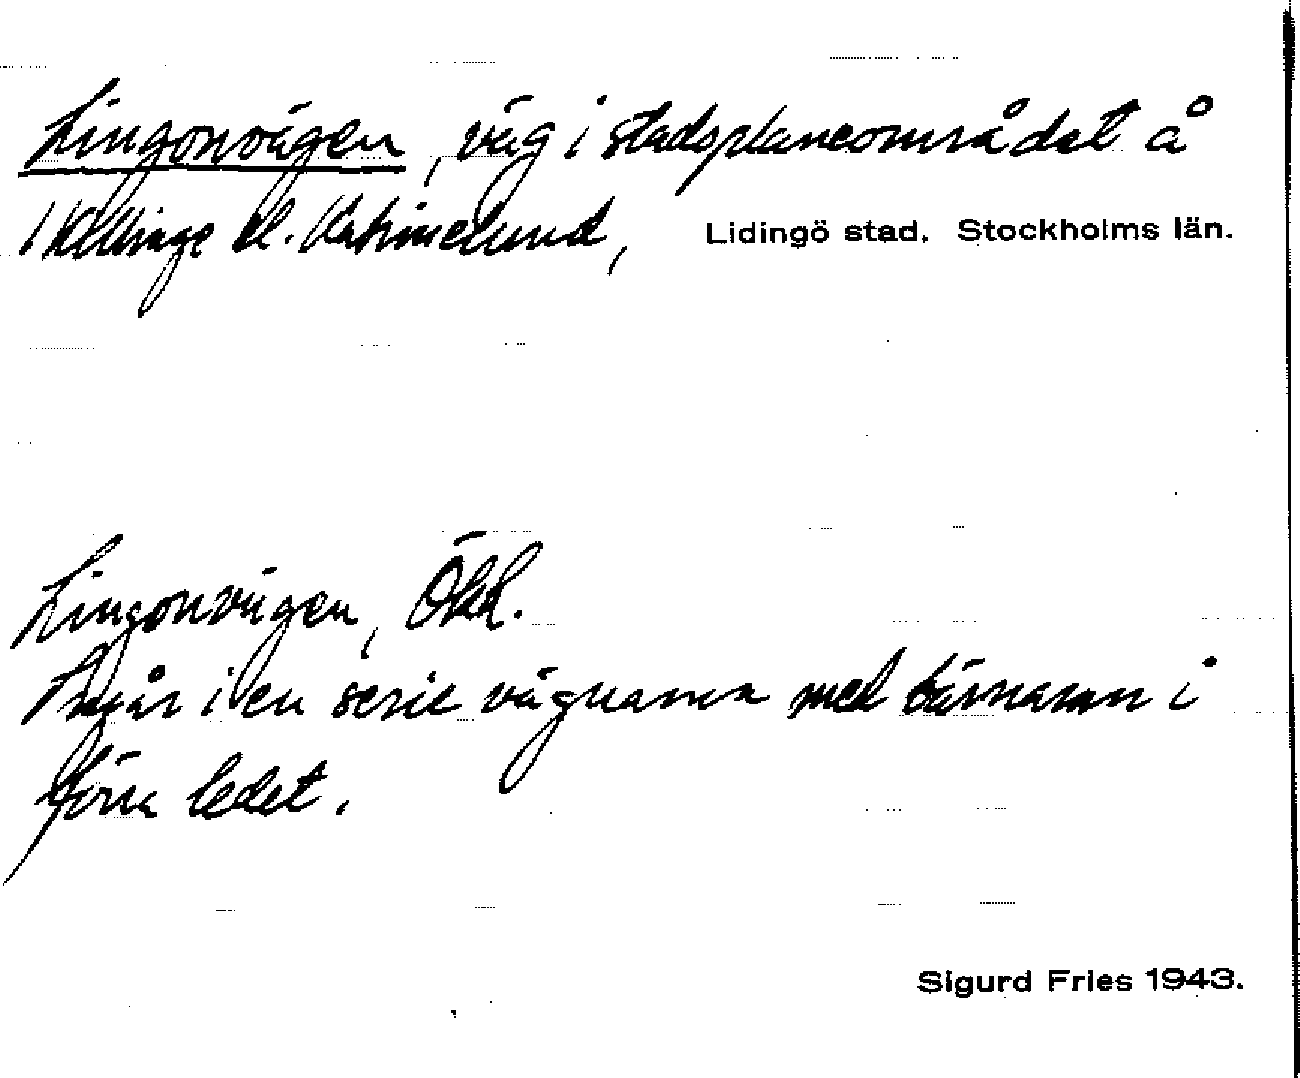 Lingonvägen, väg i stadsplaneområdet å
Källinge el. Katrinelund, Lidingö stad. Stockholms län.
Lingonvägen, Ökd.
Ingår i en serie vägnamn med bärnamn i
förra ledet.
Sigurd Fries 1943.